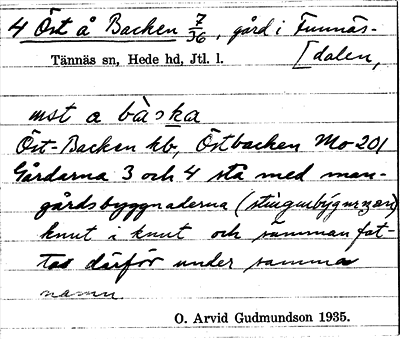 4 Öst å Backen 7/36, gård i Funnäs-
[dalen,
Tännäs sn, Hede hd, Jtl. l.
öst a bàska
Öst-Backen kb, Östbacken Mo 201
Gårdarna 3 och 4 stå med man-
gårdsbyggnaderna
knut i knut och samman fat-
tas därför under samma
namn
O. Arvid Gudmundson 1935.